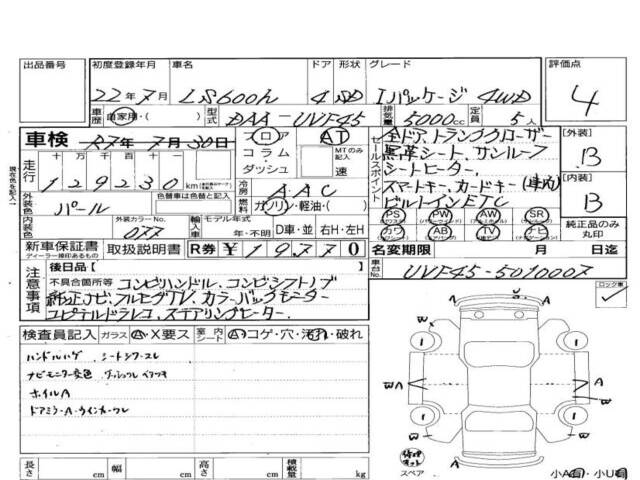 出品番号 初度登録年月 車名 ドア 形状 グレード 評価点
22年7月 LS600h 4 SD Iパッケージ 4WD 4
車歴 自家用・( ) 型式 DAA-UVF45 排気量 5000cc 定員 5人
車検 R7年7月30日 フロア AT
コラム MTのみ記入
ダッシュ 速
セールスポイント 全ドア,トランククローザー
黒革シート、サンルーフ
シートヒーター、
スマートキー,カードキー
ビルトインETC
[外装] B
[内装] B
走行 十万 万 千 百 十 一
129230km
冷房 AAC
燃料 ガソリン・軽油・( )
外装色 パール 色替車は色替と記入
内装色 外装カラーNo. 077
輸入車 モデル年式 年・不明 D車・並 右H・左H
PS PW AW SR
カワ AB TV ナビ
純正品のみ丸印
新車保証書 取扱説明書 R券 ¥19770
ディーラー捺印あるもの
名変期限 月 日迄
車台No. UVF45-5010007
注意事項 後日品[ ]
不具合箇所等 コンビハンドル、コンビシフトノブ
純正ナビ,フルセグTV、カラーバックモニター
ステアリングヒーター、
ロック車
検査員記入 ガラス A・X要ス 室内シート A コゲ・穴・汚れ・破れ
ハンドルハゲ シートシワ・スレ
ナビモニター変色
ホイルA
ドアミラーA・ウインカーワレ
W U W
A
1 1
WA W A A
1 1
W W
スペア
小A有・小U有
長さ cm 幅 cm 高さ cm 積載量 kg
現在色を記入